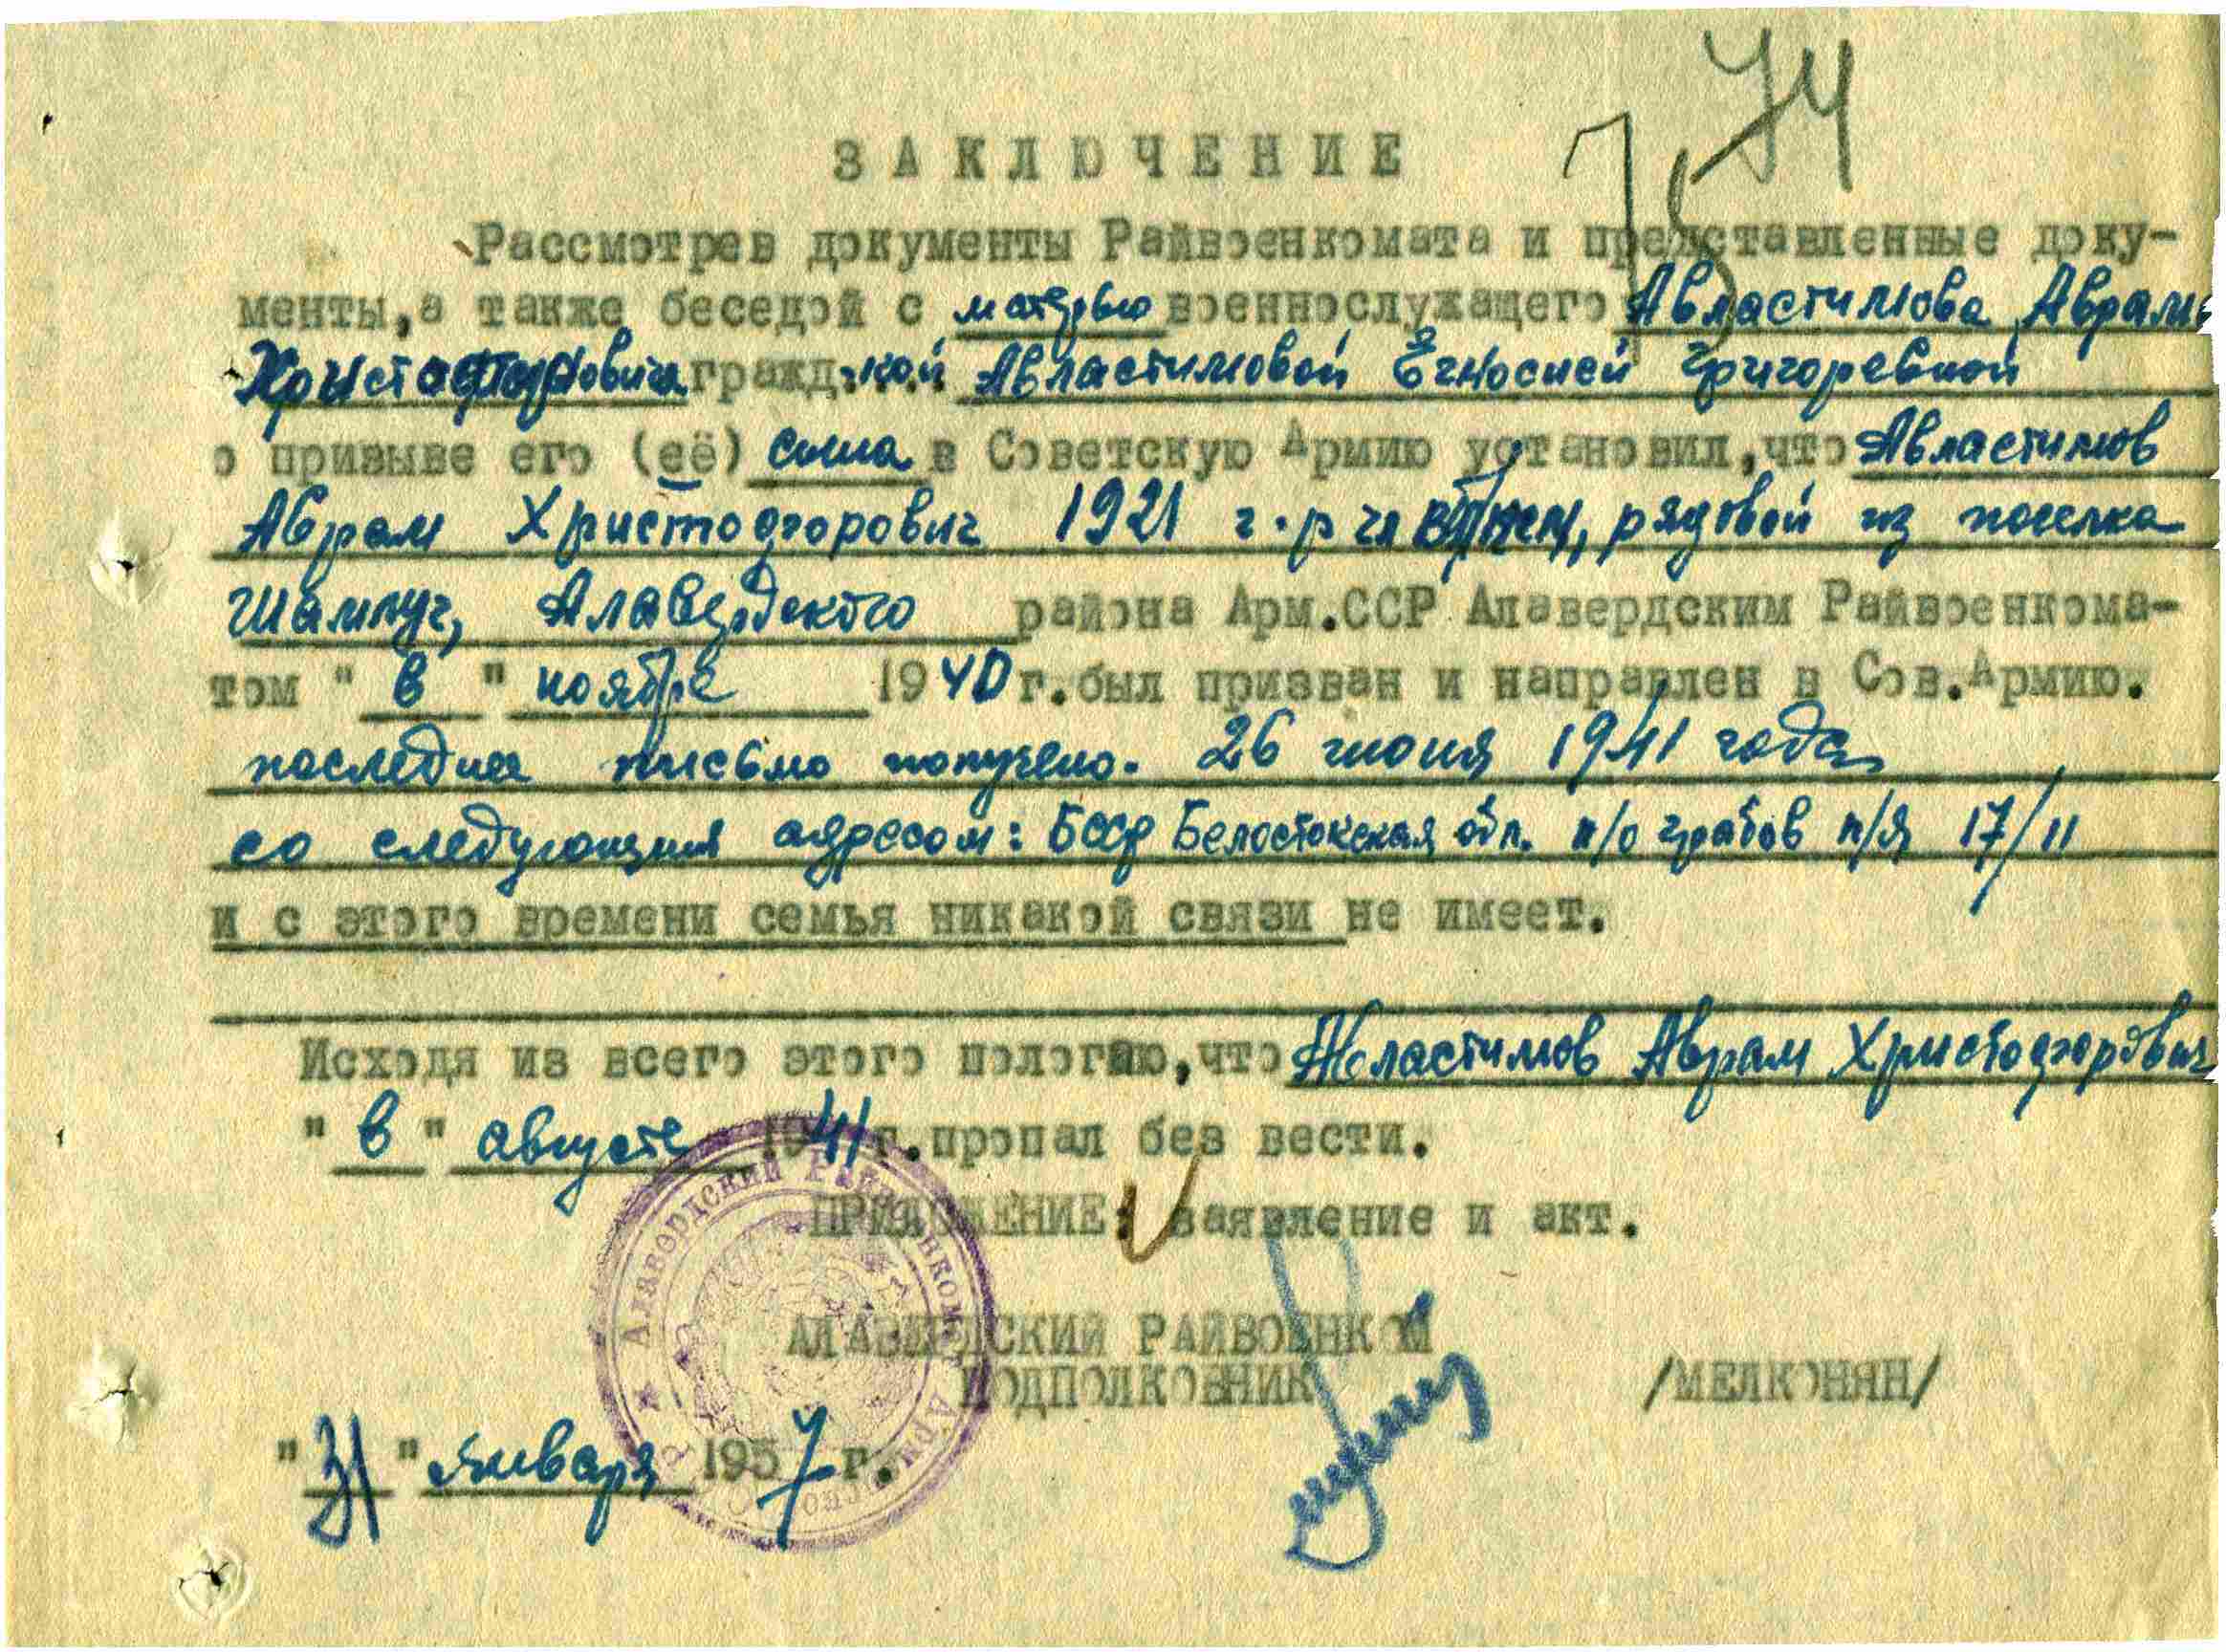 74
ЗАКЛЮЧЕНИЕ
Рассмотрев документы Райвоенкомата и представленные доку-
менты,а также беседой с матерью военнослужащего Авластимова Аврама
Христофоровича гражд.кой Авластимовой Григоревной
о призыве его (её) сына в Советскую Армию установил,что Авластимов
Аврам Христофорович 1921 г.р член рядовой из поселка
Шамлуг, Алавердского района Арм.ССР Алавердским Райвоенкома-
том " в " ноябре 1940 г.был призван и направлен в Сов.Армию.
последнее письмо получено. 26 июня 1941 года
со следующим адресом: БССР Белостокская обл. п/о Грабов п/я 17/11
и с этого времени семья никакой связи не имеет.
Исходя из всего этого пологаю,что Авластимов Аврам Христофорович
" в " августе 1941 г.пропал без вести.
ПРИЛОЖЕНИЕ: заявление и акт.
АЛАВЕРДСКИЙ РАЙВОЕНКОМ
ПОДПОЛКОВНИК /МЕЛКОНЯН/
"31" января 1957 г.
Алавердский Райвоенкомат Арм